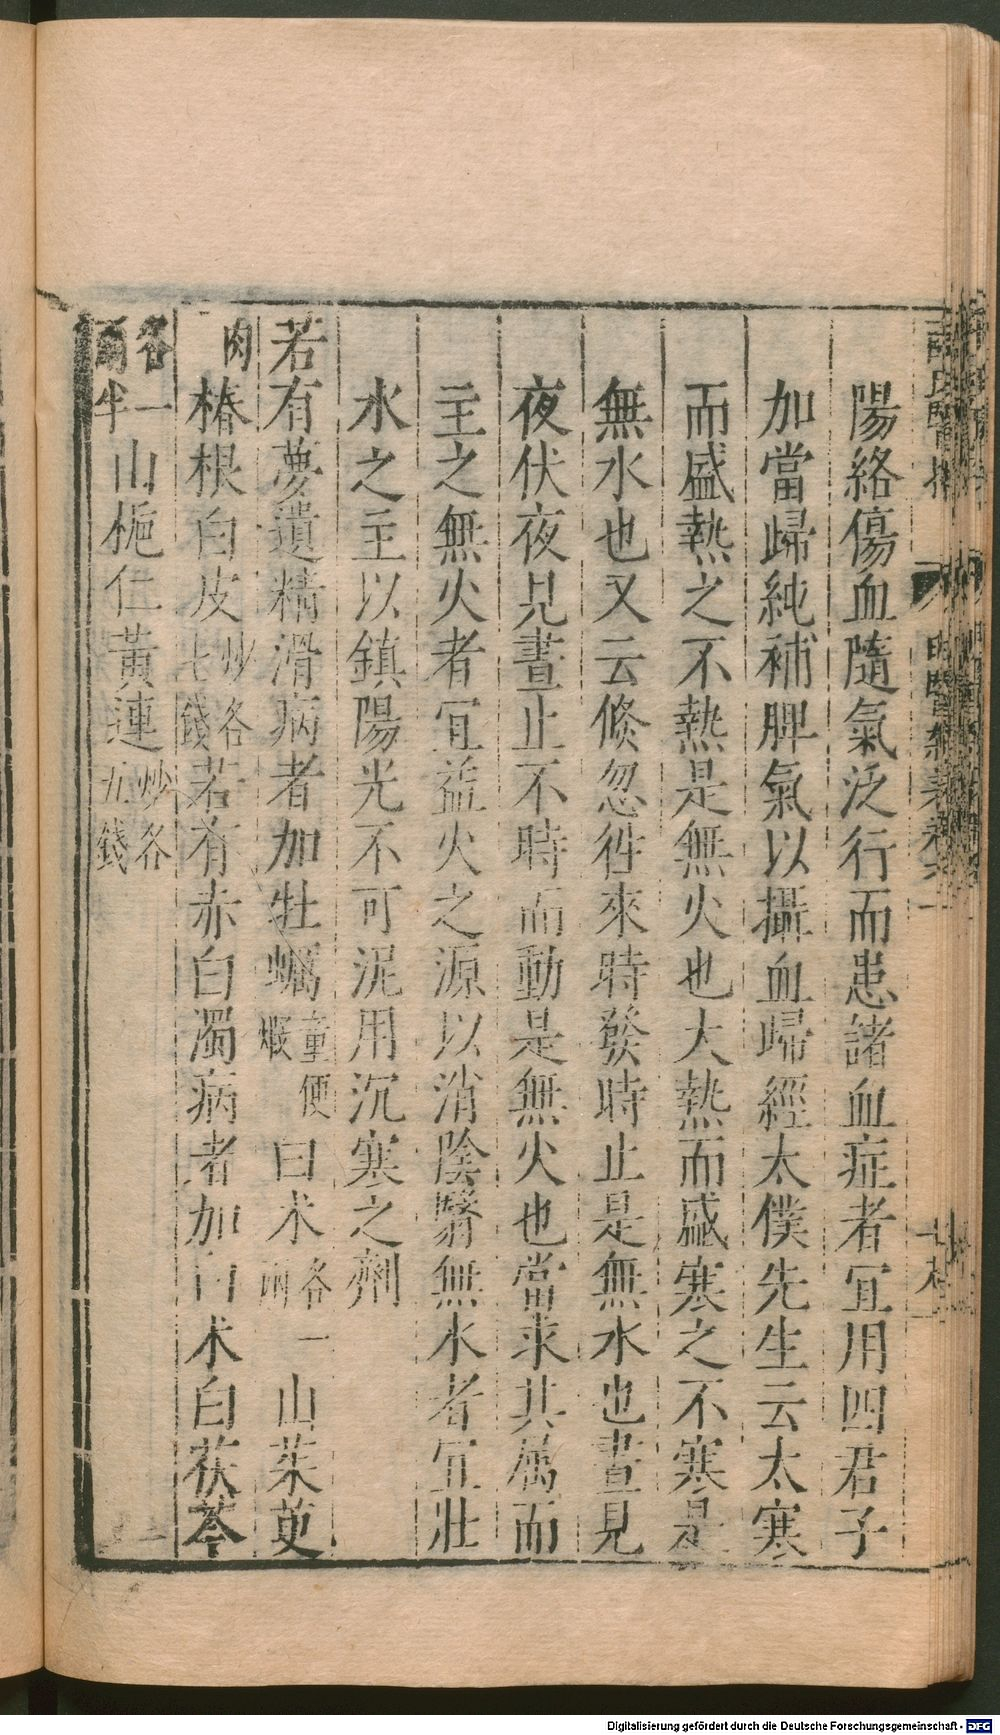 陽絡傷血隨氣泛行而患諸血症者宜用四君子
加當歸純補脾氣以攝血歸經太僕先生云太寒
而盛熱之不熱是無火也大熱而盛寒之不寒是
無水也又云倐忽徃來時發時止是無水也晝見
夜伏夜見晝止不時而動是無火也當求其属而
主之無火者宜益火之源以消陰翳無水者宜壯
水之主以鎮陽光不可泥用沉寒之劑
若有夢遺精滑病者加牡蠣童便煅白术各一兩山茱萸
肉椿根白皮炒各七錢若有赤白濁病者加白术白茯苓
各一兩半山梔仁黃連炒各五錢
Digitalisierung gefördert durch die Deutsche Forschungsgemeinschaft - DFG